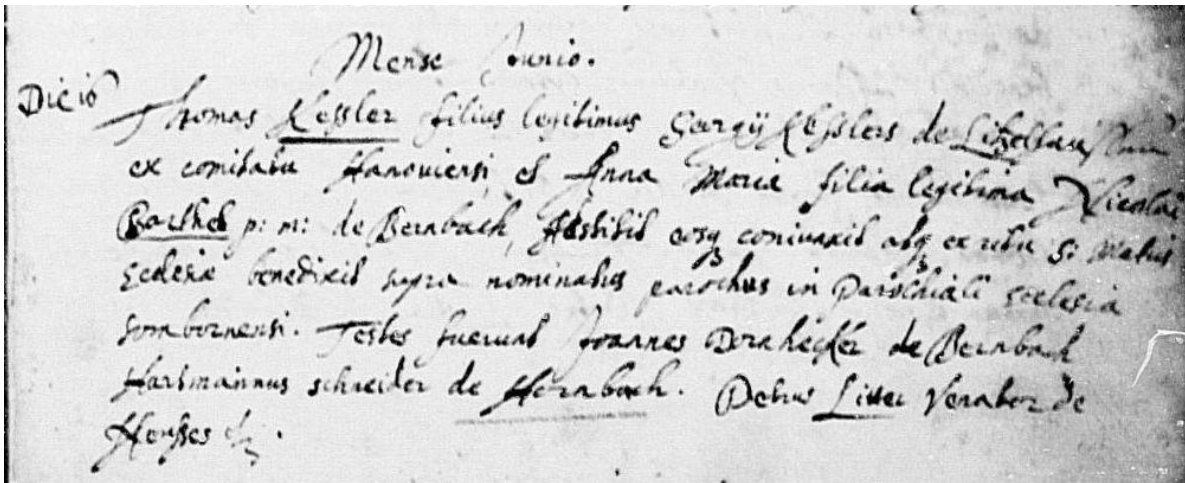 Mense Junio.
Die 16 Thomas Kessler filius legitimus Georgÿ Kesslers de Litzelhausen
ex comitatu Hanouiensi, et Anna Maria filia legitima Nicolai
Barthel p: m: de Bernbach, Astitit eosq coniunxit atq ex ritu S: Matris
Ecclesiæ benedixit supra nominatus parochus in Parochiali Ecclesia
Sombornensi. Testes fuerunt Joannes Dornhecker de Bernbach
Hartmannus schneider de Hornbach. Petrus Litter Venator de